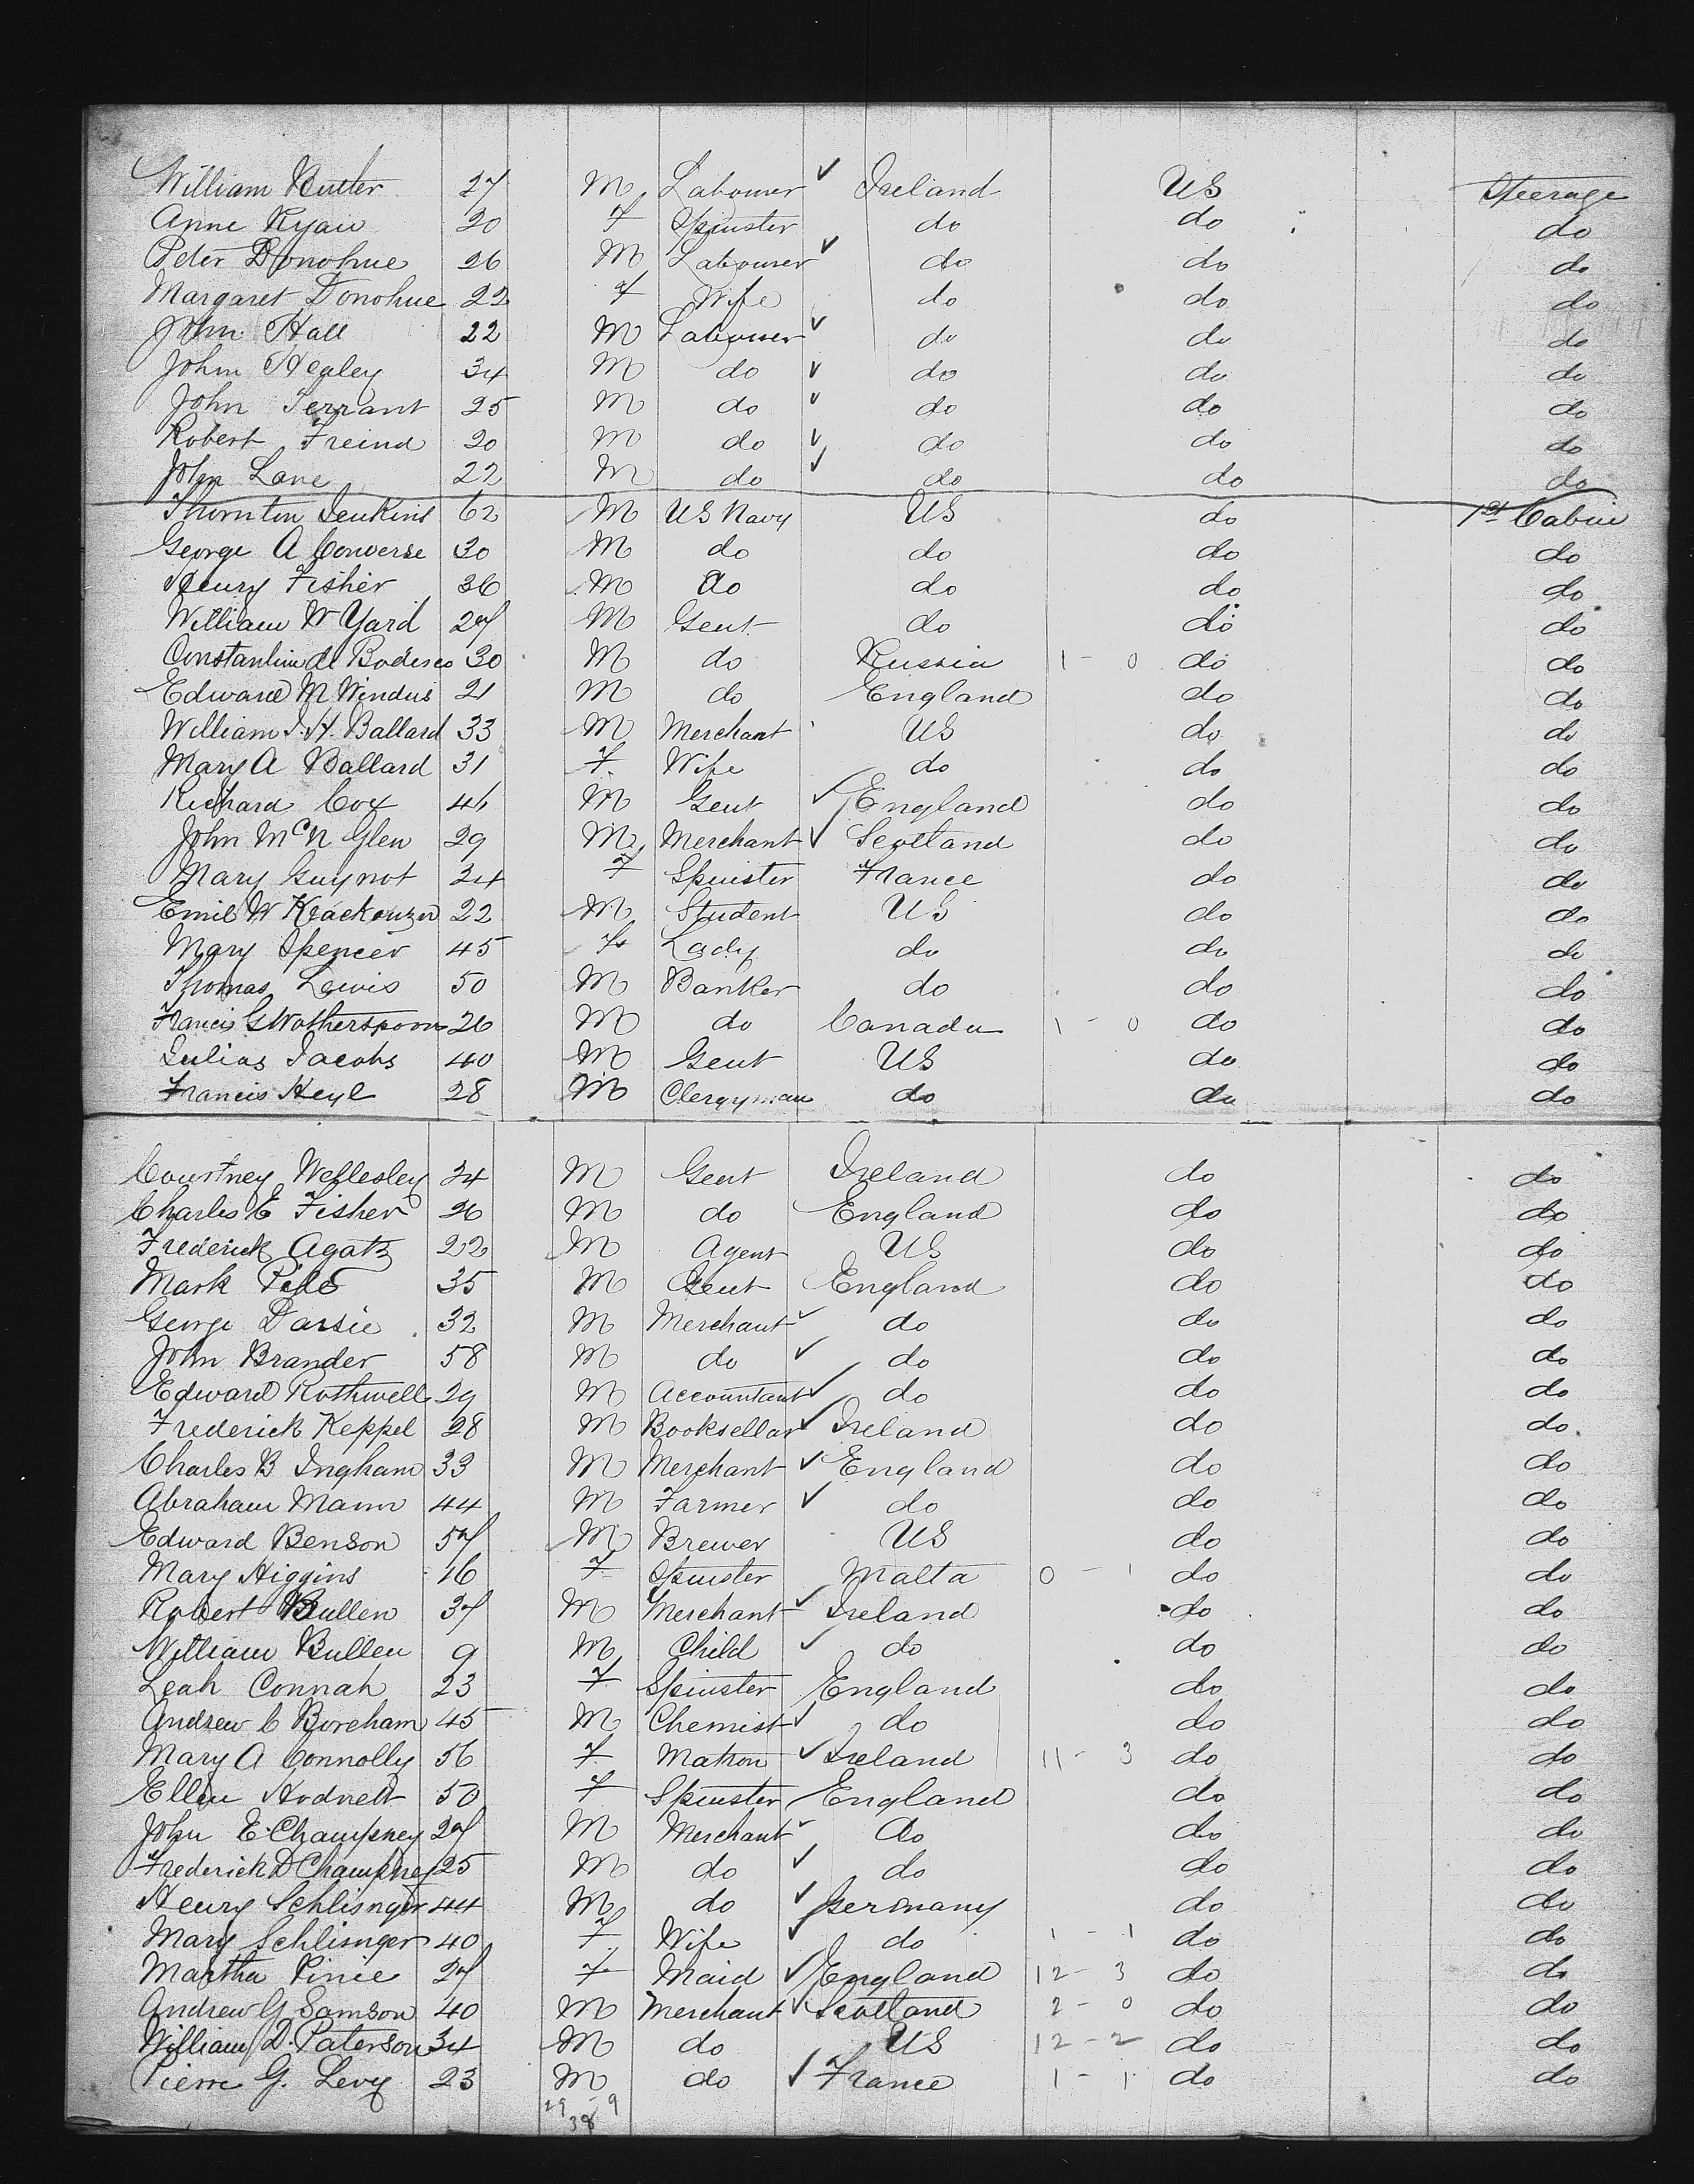 William Butler 27 M Labourer ✓ Ireland US Steerage
Anne Ryan 20 F Spinster do do do
Peter Donohue 26 M Labourer ✓ do do do
Margaret Donohue 22 F Wife do do do
John Hall 22 M Labourer ✓ do do do
John Healey 34 M do ✓ do do do
John Terrant 25 M do ✓ do do do
Robert Freind 20 M do ✓ do do do
John Lane 22 M do ✓ do do do
Thornton Jenkins 62 M US Navy US do 1st Cabin
George A Converse 30 M do do do do
Henry Fisher 36 M do do do do
William W Yard 27 M Gent do do do
Constantine de Bodisco 30 M do Russia 1 - 0 do do
Edward M Windus 21 M do England do do
William J. H. Ballard 33 M Merchant US do do
Mary A Ballard 31 F Wife do do do
Richard Cox 46 M Gent ✓ England do do
John McN Glen 29 M Merchant ✓ Scotland do do
Mary Guynot 34 F Spinster France do do
Emil W 22 M Student US do do
Mary Spencer 45 F Lady do do do
Thomas Lewis 50 M Banker do do do
Francis G Wotherspoon 26 M do Canada 1 - 0 do do
Julius Jacobs 40 M Gent US do do
Francis Heyl 28 M Clergyman do do do
Courtney Wellesley 34 M Gent Ireland do do
Charles E Fisher 26 M do England do do
Frederick Agatz 22 M Agent US do do
Mark 35 M Gent England do do
George Darsie 32 M Merchant ✓ do do do
John Brander 58 M do ✓ do do do
Edward Rothwell 29 M Accountant ✓ do do do
Frederick Keppel 28 M Booksellar ✓ Ireland do do
Charles B Ingham 33 M Merchant ✓ England do do
Abraham Mann 44 M Farmer ✓ do do do
Edward Benson 57 M Brewer US do do
Mary Higgins 16 F Spinster Malta 0 - 1 do do
Robert Bullen 37 M Merchant ✓ Ireland do do
William Bullen 9 M Child ✓ do do do
Leah Connah 23 F Spinster England do do
Andrew C Boreham 45 M Chemist ✓ do do do
Mary A Connolly 56 F Matron ✓ Ireland 11 - 3 do do
Ellen Hodnett 50 F Spinster England do do
John E. Champney 27 M Merchant ✓ do do do
Frederick D Champney 25 M do ✓ do do do
Henry Schlisnger 44 M do ✓ Germany do do
Mary Schlisnger 40 F Wife ✓ do 1 - 1 do do
Martha Pinie 27 F Maid ✓ England 12 - 3 do do
Andrew G Samson 40 M Merchant ✓ Scotland 2 - 0 do do
William D. Paterson 34 M do US 12 - 2 do do
Pierre G. Levy 23 M do ✓ France 1 - 1 do do
29 - 9
38